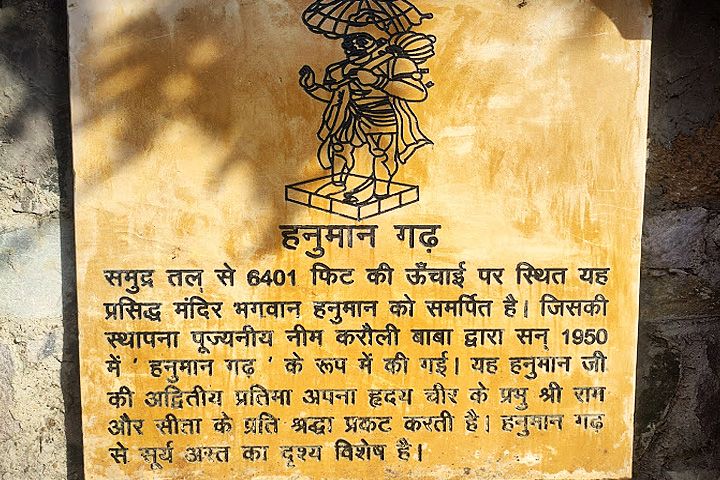 हनुमान गढ़
समुद्र तल से 6401 फिट की ऊँचाई पर स्थित यह
प्रसिद्ध मंदिर भगवान हनुमान को समर्पित है। जिसकी
स्थापना पूज्यनीय नीम करौली बाबा द्वारा सन् 1950
में ' हनुमान गढ़ ' के रूप में की गई। यह हनुमान जी
की अद्वितीय प्रतिमा अपना हृदय चीर के प्रभु श्री राम
और सीता के प्रति श्रद्धा प्रकट करती है। हनुमान गढ़
से सूर्य अस्त का दृश्य विशेष है।